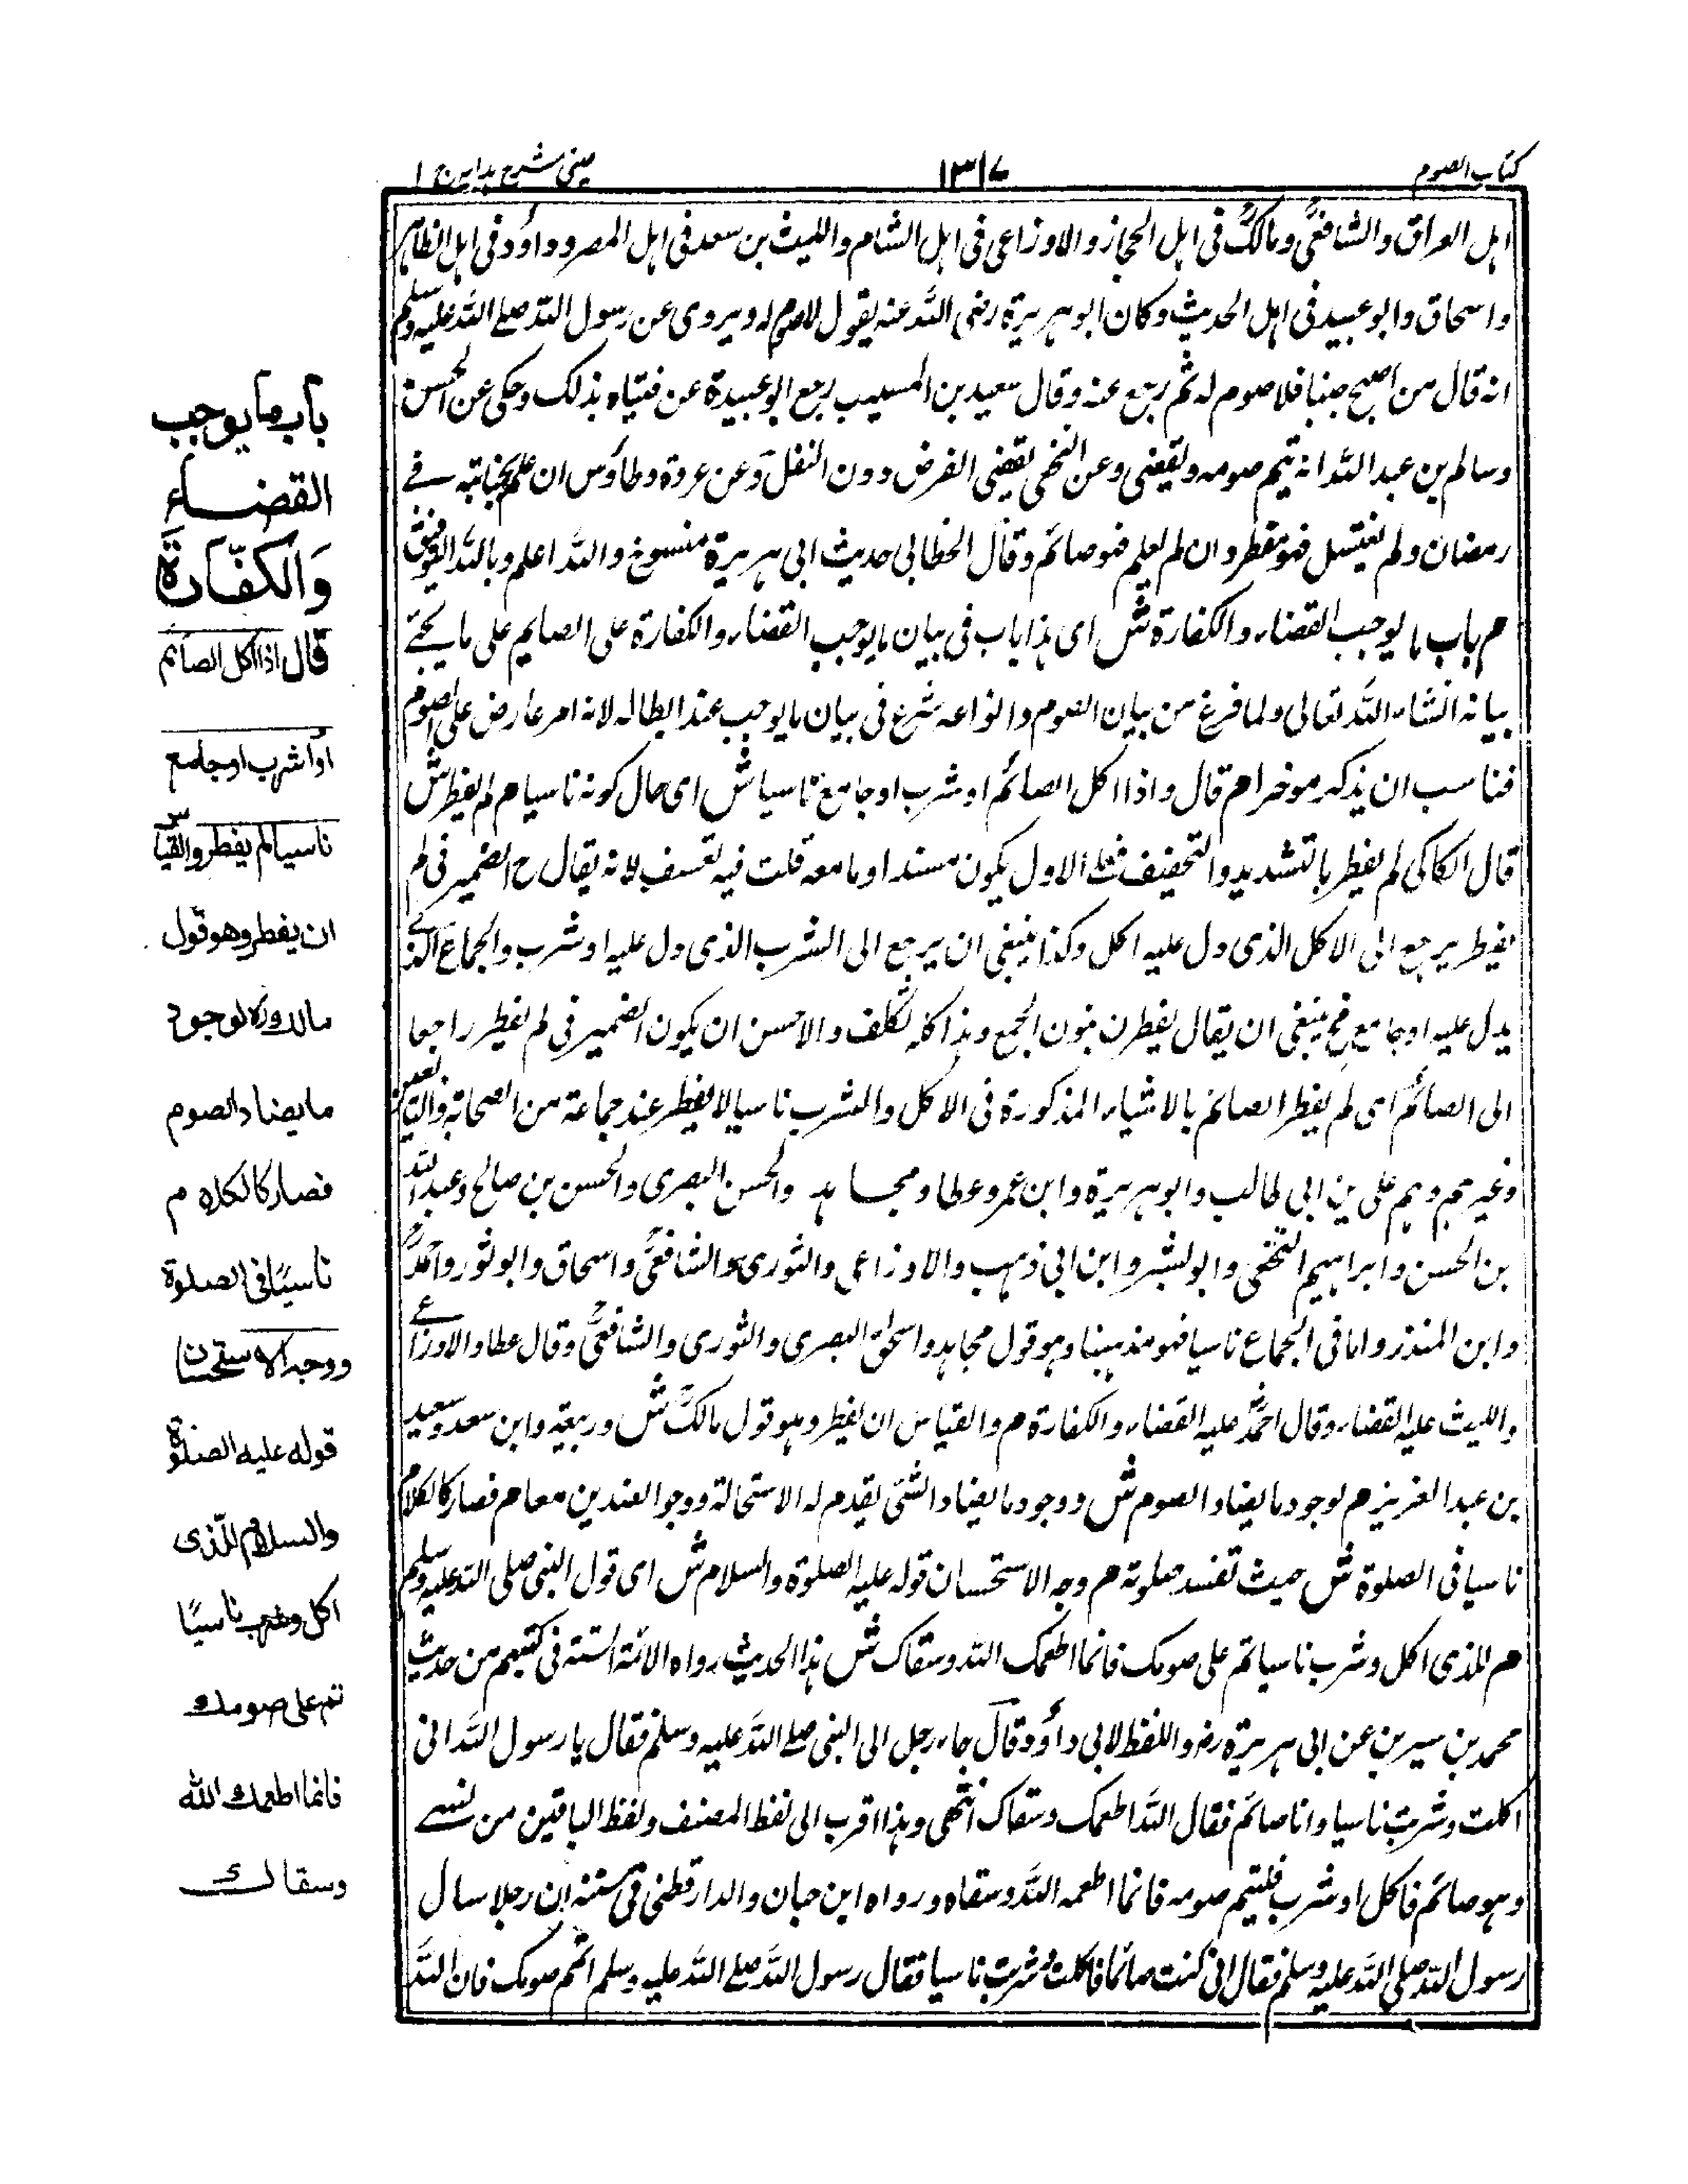 كتاب الصوم
١٣١٧
عيني شرح هداية ج ١
اهل العراق والشافعيؒ ومالكؒ في اهل الحجاز والاوزاعي في اهل الشام والليث بن سعد في اهل المصر وداؤد في اهل الظاهر
واسحاق وابو عبيد في اهل الحديث وكان ابو هريرة رضي الله عنه يقول لا صوم له ويروى عن رسول الله صلى الله عليه وسلم
انه قال من اصبح جنبا فلا صوم له ثم رجع عنه وقال سعيد بن المسيب رجع ابو عبيدة عن فتياه بذلك وحكى عن الحسن
وسالم بن عبد الله انه يتم صومه ويقضي وعن النخعي يقضي الفرض دون النفل وعن عروة وطاؤس ان علم بجنابته في
رمضان ولم يغتسل فهو مفطر وان لم يعلم فهو صائم وقال الخطابي حديث ابي هريرة منسوخ والله اعلم وبالله التوفيق
م باب ما يوجب القضاء والكفارة ش اى هذا باب في بيان ما يوجب القضاء والكفارة على الصايم على ما يجئ
بيانه انشاء الله تعالى ولما فرغ من بيان الصوم وانواعه شرع في بيان ما يوجب عند ابطاله لانه امر عارض على الصوم
فناسب ان يذكر موخرا م قال واذا اكل الصائم او شرب او جامع ناسيا ش اى حال كونه ناسيا م لم يفطر ش
قال الكاكي لم يفطر بالتشديد والتخفيف فعلى الاول يكون مسندا وما معه قلت فيه تعسف لانه يقال ح الضمير في لم
يفطر يرجع الى الاكل الذى دل عليه اكل وكذا ينبغي ان يرجع الى الشرب الذى دل عليه او شرب والجماع الذى
يدل عليه او جامع فح ينبغي ان يقال يفطرن بنون الجمع وهذا كله تكلف والاحسن ان يكون الضمير في لم يفطر راجعا
الى الصائم اى لم يفطر الصائم بالاشياء المذكورة في الاكل والشرب ناسيا لا يفطر عند جماعة من الصحابة والتابعين
وغيرهم وهم علي بن ابي طالب وابو هريرة وابن عمر وعطا ومجاهد والحسن البصرى والحسن بن صالح وعبد الله
بن الحسن وابراهيم النخعي وابو بشر وابن ابي ذهب والاوزاعي والثورى والشافعيؒ واسحاق وابو ثور واحمدؒ
وابن المنذر واما في الجماع ناسيا فهو مذهبنا وهو قول مجاهد واسحاق البصرى والثورى والشافعيؒ وقال عطا والاوزاعي
والليث عليه القضاء وقال احمدؒ عليه القضاء والكفارة م والقياس ان يفطر وهو قول مالكؒ ش وربيعة وابن سعد وسعيد
بن عبد العزيز م لوجود ما يضاد الصوم ش ووجود ما يضاد الشئ يقدم له الاستحالة ووجوا الضدين معا م فصار كالكلام
ناسيا في الصلوة ش حيث تفسد صلوته م وجه الاستحسان قوله عليه الصلوة والسلام ش اى قول النبي صلى الله عليه وسلم
م للذى اكل وشرب ناسيا تم على صومك فانما اطعمك الله وسقاك ش هذا الحديث رواه الائمة الستة في كتبهم من حديث
محمد بن سيرين عن ابي هريرة رضـ واللفظ لابي داؤد وقال جاء رجل الى النبي صلى الله عليه وسلم فقال يا رسول الله اني
اكلت وشربت ناسيا وانا صائم فقال الله اطعمك وسقاك انتهى وهذا اقرب الى لفظ المصنف ولفظ الباقين من نسي
وهو صائم فاكل او شرب فليتم صومه فانما اطعمه الله وسقاه ورواه ابن حبان والدارقطني في سننه ان رجلا سال
رسول الله صلى الله عليه وسلم فقال اني كنت صائما فاكلت وشربت ناسيا فقال رسول الله صلى الله عليه وسلم اتم صومك فان الله
باب ما يوجب
القضاء
وَالكفّارة
قال اذا اكل الصائم
او شرب او جامع
ناسيا لم يفطر والقياس
ان يفطر وهو قول
مالكؒ لوجود
ما يضاد الصوم
فصار كالكلام
ناسيًا في الصلوة
ووجه الاستحسان
قوله عليه الصلوة
والسلام للّذى
اكل وشرب ناسيًا
تم على صومك
فانما اطعمك الله
وسقاك